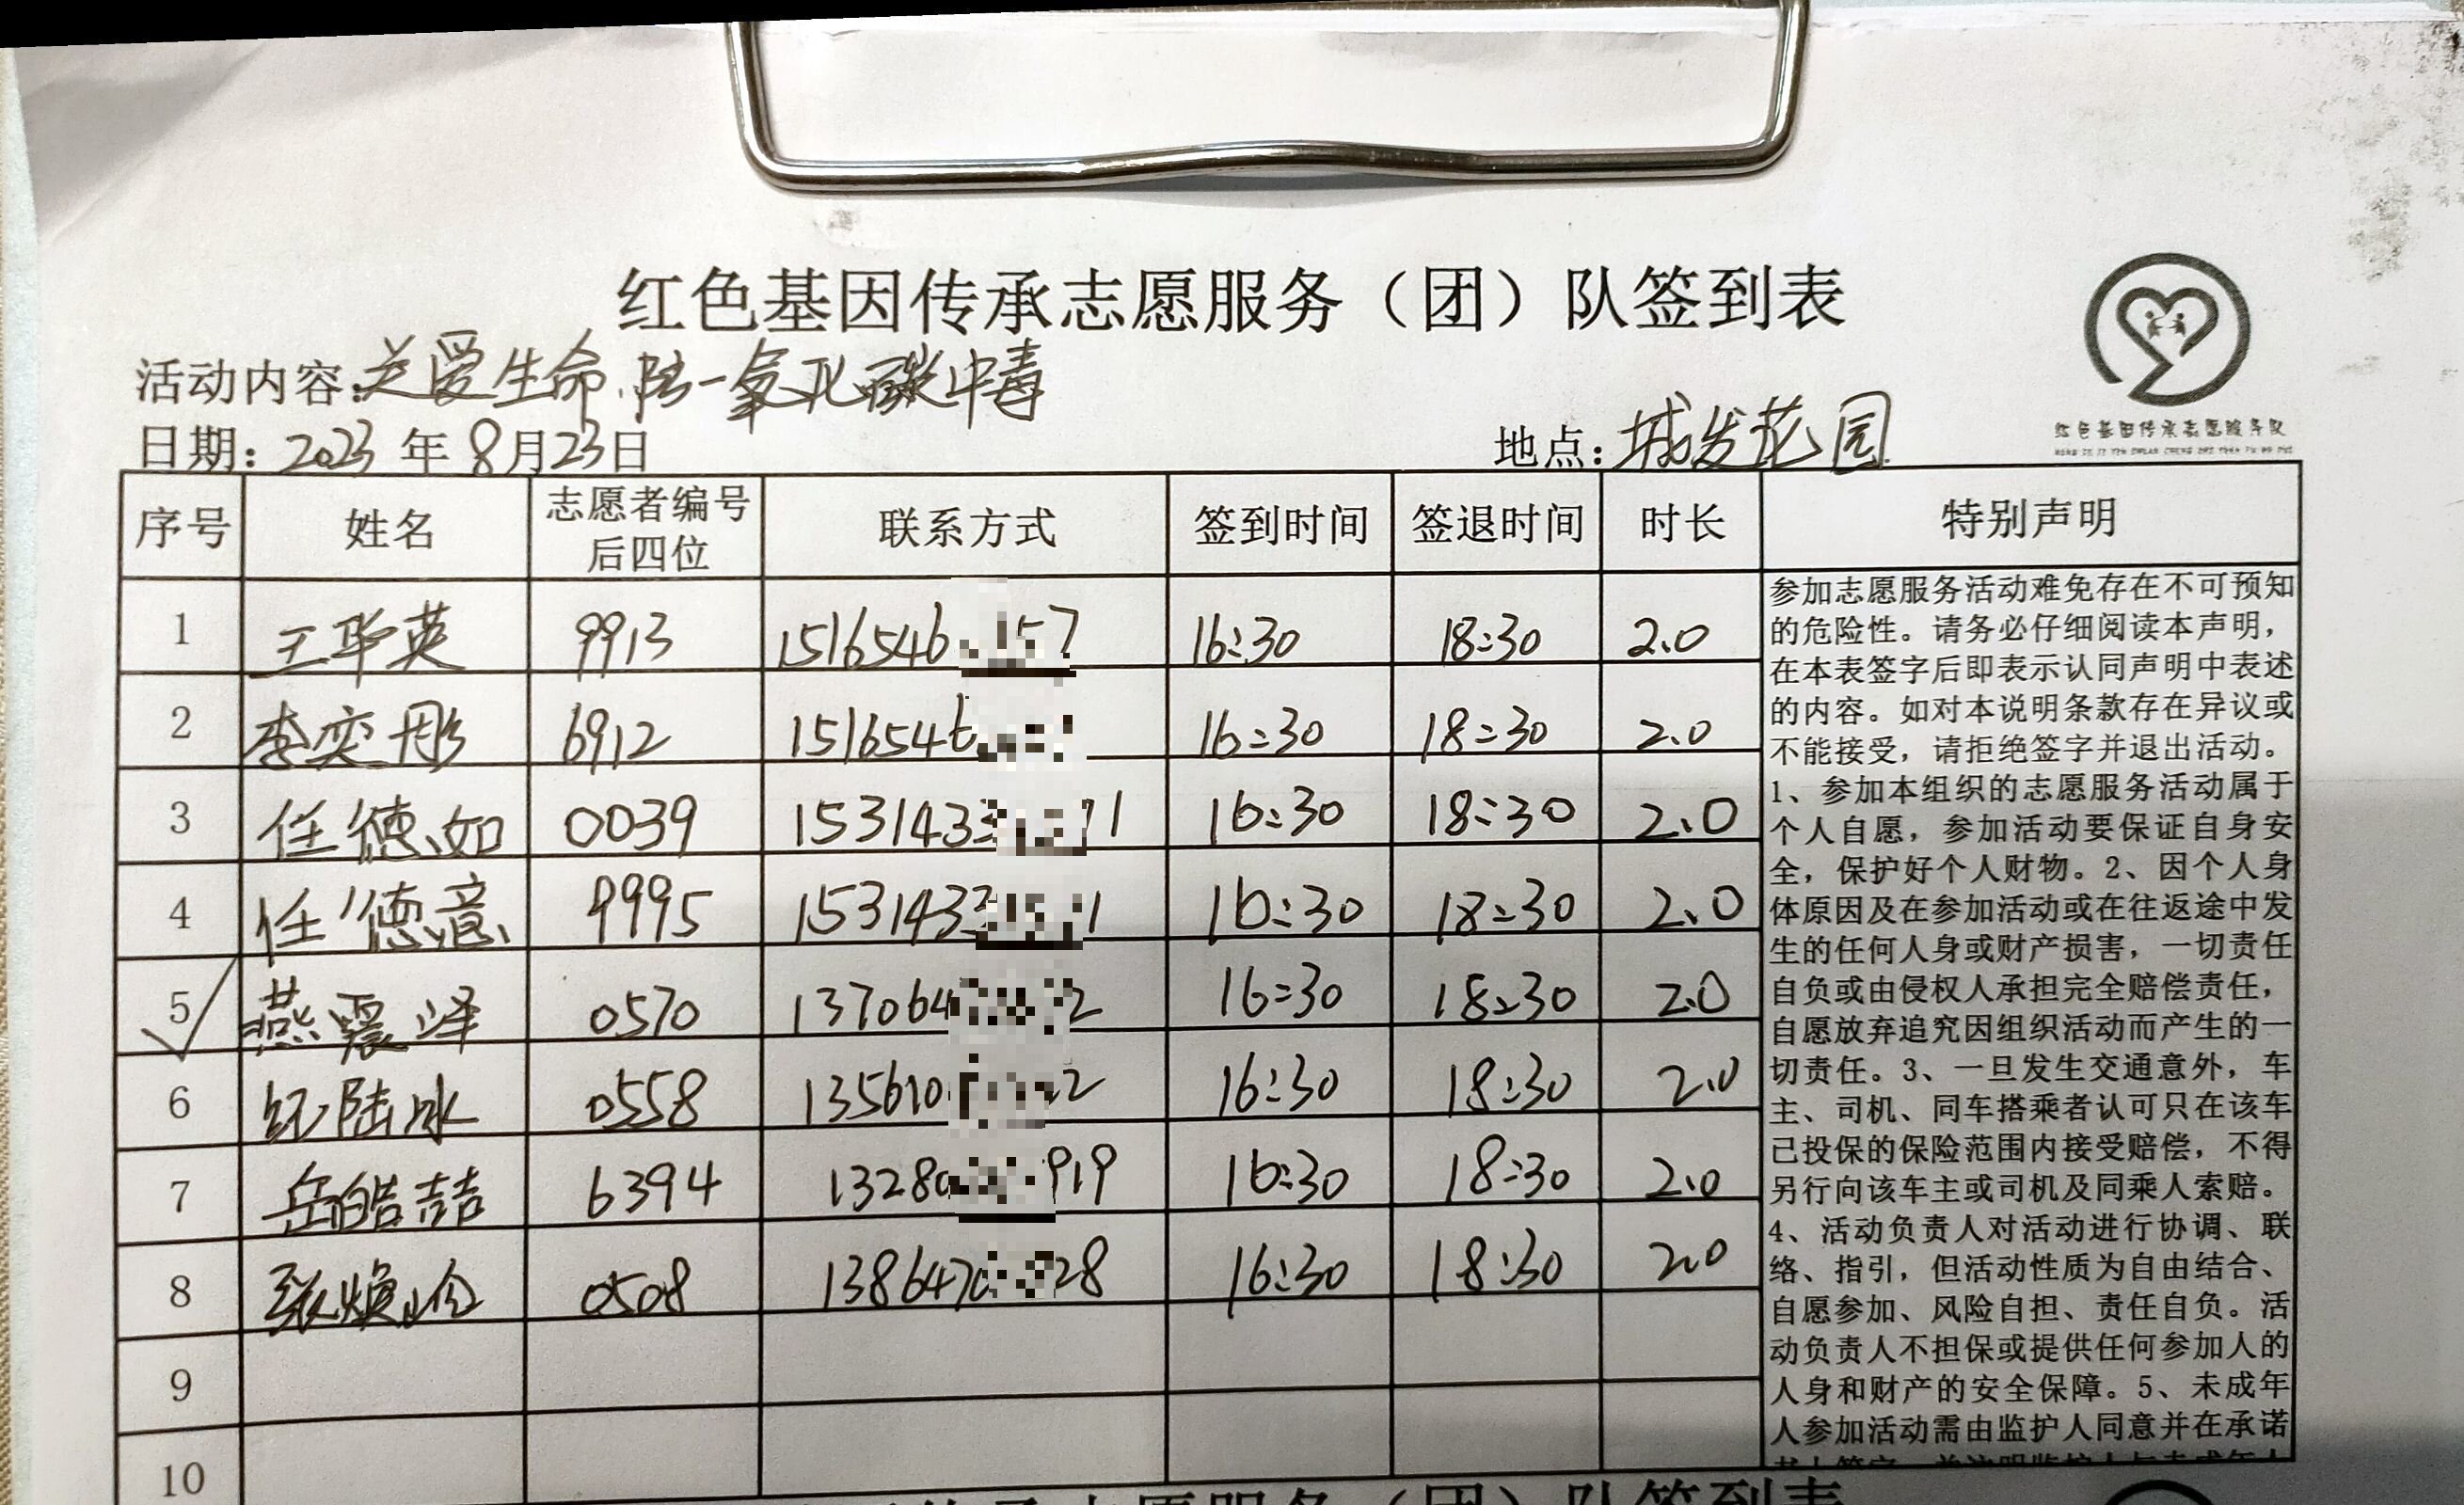 红色基因传承志愿服务（团）队签到表
活动内容：关爱生命.防一氧化碳中毒
日期：2023年8月23日 地点：城发花园
红色基因传承志愿服务队
序号 姓名 志愿者编号后四位 联系方式 签到时间 签退时间 时长 特别声明
1 王华英 9913 1516546 157 16:30 18:30 2.0
2 李奕彤 6912 1516546 16:30 18:30 2.0
3 任德如 0039 1531433 71 16:30 18:30 2.0
4 任德意 9995 1531433 1 16:30 18:30 2.0
5 燕震泽 0570 137064 2 16:30 18:30 2.0
6 纪陆冰 0558 135610 2 16:30 18:30 2.0
7 岳皓喆 6394 13280 919 16:30 18:30 2.0
8 张焕 0508 1386470 28 16:30 18:30 2.0
9
10
参加志愿服务活动难免存在不可预知
的危险性。请务必仔细阅读本声明，
在本表签字后即表示认同声明中表述
的内容。如对本说明条款存在异议或
不能接受，请拒绝签字并退出活动。
1、参加本组织的志愿服务活动属于
个人自愿，参加活动要保证自身安
全，保护好个人财物。2、因个人身
体原因及在参加活动或在往返途中发
生的任何人身或财产损害，一切责任
自负或由侵权人承担完全赔偿责任，
自愿放弃追究因组织活动而产生的一
切责任。3、一旦发生交通意外，车
主、司机、同车搭乘者认可只在该车
已投保的保险范围内接受赔偿，不得
另行向该车主或司机及同乘人索赔。
4、活动负责人对活动进行协调、联
络、指引，但活动性质为自由结合、
自愿参加、风险自担、责任自负。活
动负责人不担保或提供任何参加人的
人身和财产的安全保障。5、未成年
人参加活动需由监护人同意并在承诺